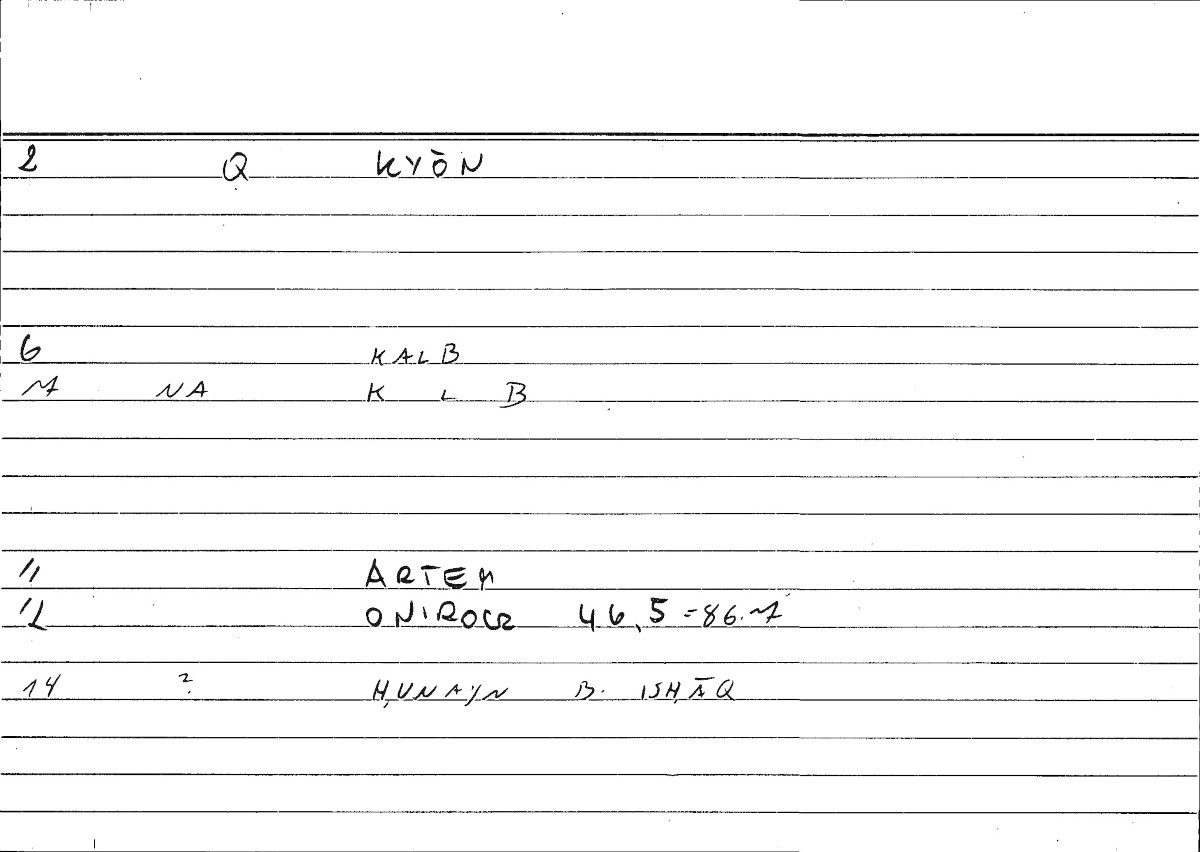 2 Q KYŌN
6 KALB
7 NA K L B
11 ARTEM
12 ONIROCR 46,5=86.7
14 ? ḤUNAYN B. ISḤĀQ